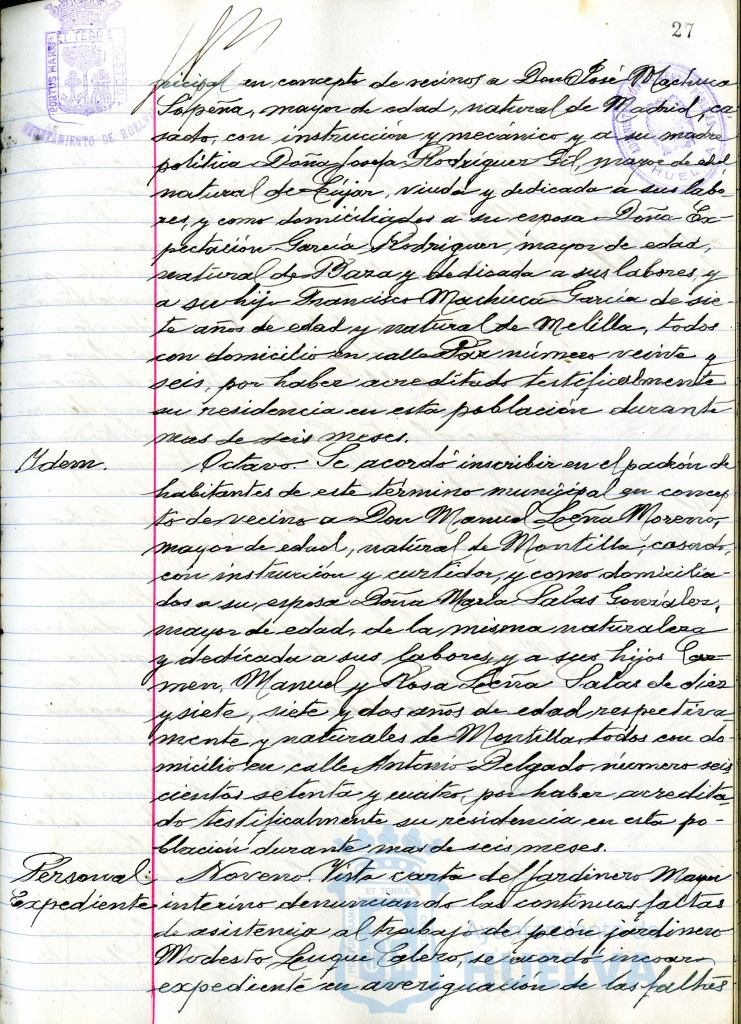 27
PORTUS MARIS ET TERRÆ CUSTODIA
AYUNTAMIENTO DE HUELVA
HUELVA
nicipal en concepto de vecinos a Don José Machuca
Lapeña, mayor de edad, natural de Madrid, ca-
sado, con instrucción y mecánico y a su madre
política Doña Josefa Rodríguez Gil, mayor de edad
natural de Cújar, viuda y dedicada a sus labo-
res, y como domiciliados a su esposa Doña Ex-
pectación García Rodríguez, mayor de edad,
natural de Baza y dedicada a sus labores, y
a su hijo Francisco Machuca García de sie-
te años de edad y natural de Melilla, todos
con domicilio en calle Paz número veinte y
seis, por haber acreditado testificalmente
su residencia en esta población durante
mas de seis meses.
Idem. Octavo. Se acordó inscribir en el padrón de
habitantes de este término municipal en concep-
to de vecino a Don Manuel Leña Moreno,
mayor de edad, natural de Montilla, casado,
con instrucción y curtidor, y como domicilia-
dos a su esposa Doña María Salas González,
mayor de edad, de la misma naturaleza
y dedicada a sus labores, y a sus hijos Car-
men, Manuel y Rosa Leña Salas de diez
y siete, siete y dos años de edad respectiva-
mente y naturales de Montilla, todos con do-
micilio en calle Antonio Delgado número seis
cientos setenta y cuatro, por haber acredita-
do testificalmente su residencia en esta po-
blación durante mas de seis meses.
Personal: Noveno. Vista carta del Jardinero Mayor
Expediente interino denunciando las continuas faltas
de asistencia al trabajo del peón jardinero
Modesto Luque Calero, se acordó incoar
expediente en averiguación de las faltas
Ayuntamiento de
HUELVA